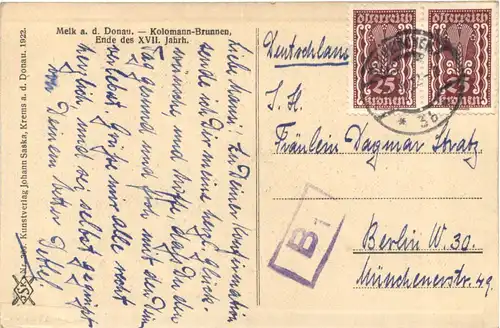 Melk a. d. Donau. — Kolomann-Brunnen,
Ende des XVII. Jahrh.
Kunstverlag Johann Saska, Krems a. d. Donau. 1922.
Zu Deiner Konfirmation
sende ich Dir meine herzl. Glück-
wünsche, und hoffe, daß Du den
Tag gesund und froh mit den Deinen
verlebst. Grüße mir alle recht
herzlich, und sei selbst gegrüßt
von Deinem
Österreich
25
Kronen
Österreich
25
Kronen
* 3b
Deutschland
Fräulein Dagmar Stratz
Berlin W. 30
Münchenerstr. 49.
B1